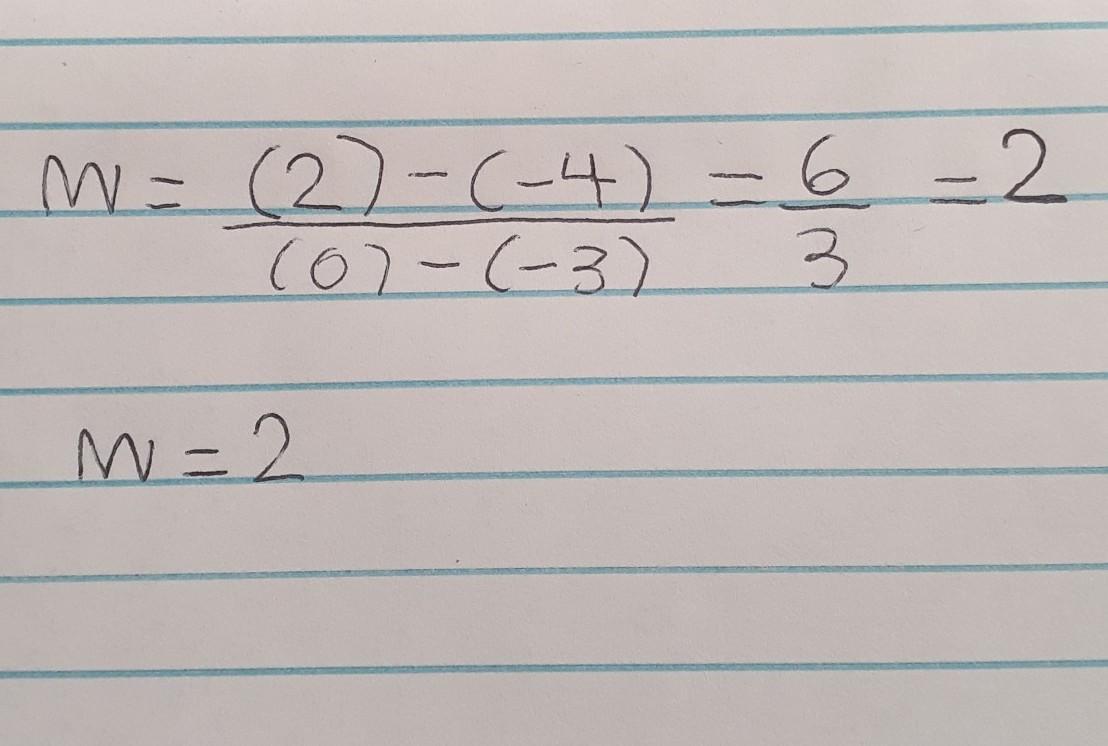 m = (2) - (-4) / (0) - (-3) = 6 / 3 = 2
m = 2